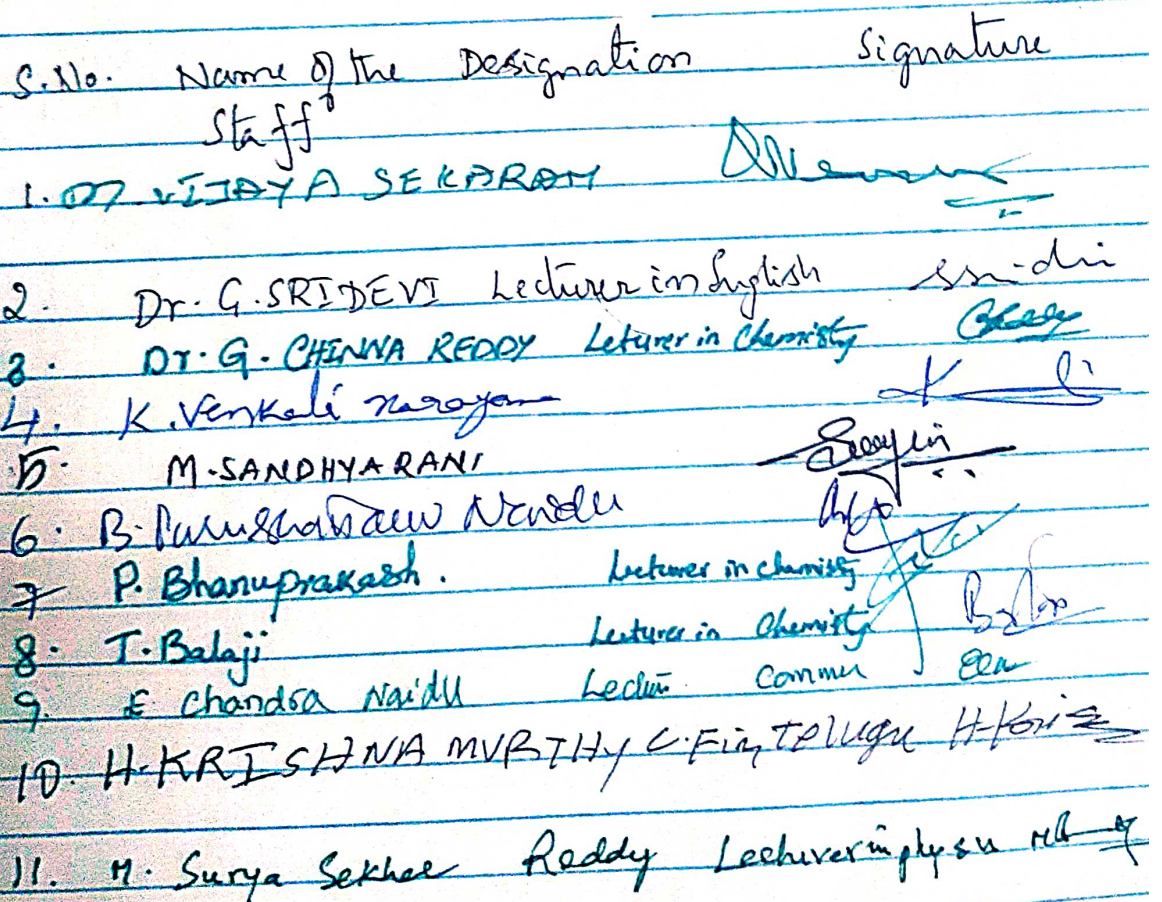 S.No. Name of the Designation Signature
Staff
1. Dr VIJAYA SEKARAM
2. Dr. G. SRIDEVI Lecturer in English
3. Dr. G. CHINNA REDDY Leturer in Chemistry
4. K. Venkata Narayana
5. M. SANDHYA RANI
6. B. Purushotham Naidu
7 P. Bhanuprakash. Lecturer in chemistry
8. T. Balaji Lecturer in Chemistry
9. E Chandra Naidu Commer
10. H. KRISHNA MURTHY in Telugu
11. M. Surya Sekhar Reddy Lecturer in